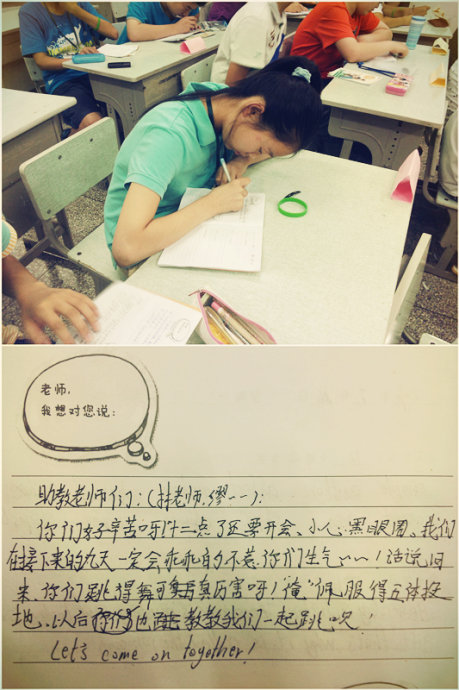 老师,
我想对您说:
助教老师们:(老师.缪~~):
你们好辛苦呀!十二点了还要开会、小心黑眼圈、我们
在接下来的九天一定会乖乖的不惹你们生气~~!话说回
来、你们跳得舞可真厉害呀!"俺"佩服得五体投
地、以后也教教我们一起跳呗!
Let's come on together!